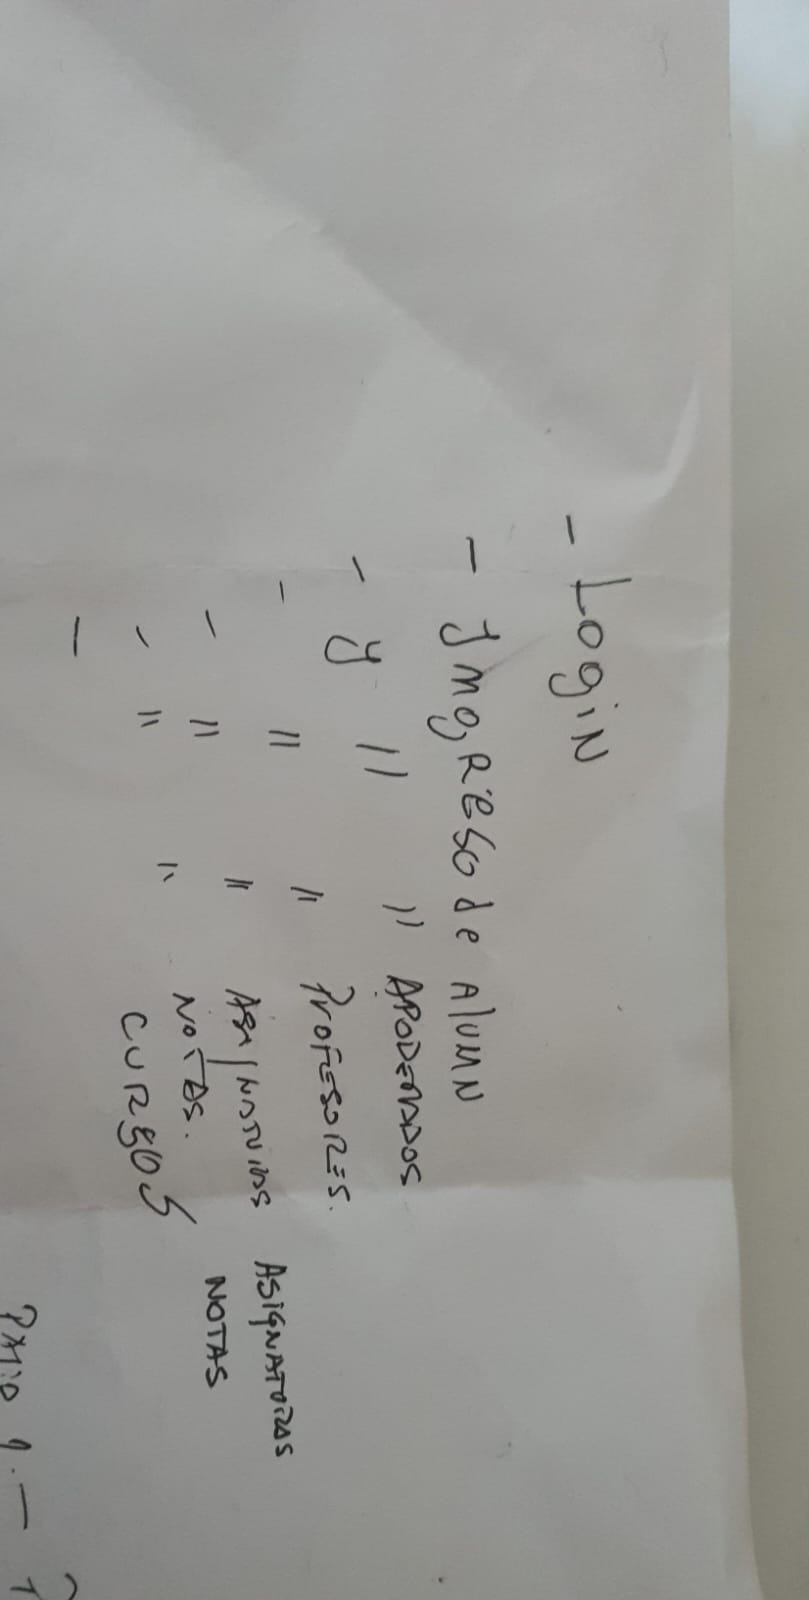 - Login
- Ingreso de Alumn
- y " " APODERADOS
- " " Profesores.
- " " Asignaturas ASIGNATURAS
- " " NOTAS. NOTAS
- CURSOS
1.-